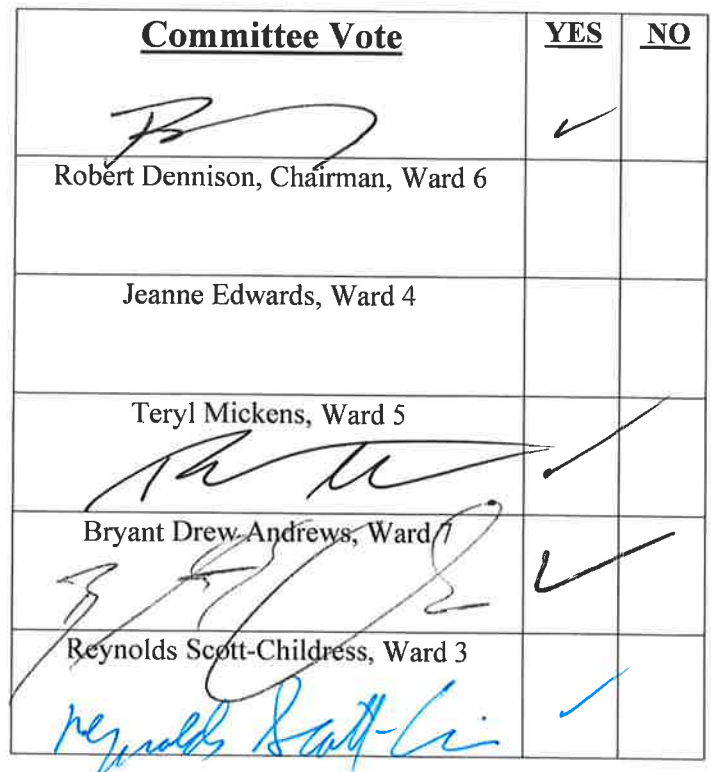 Committee Vote YES NO
Robert Dennison, Chairman, Ward 6
Jeanne Edwards, Ward 4
Teryl Mickens, Ward 5
Bryant Drew Andrews, Ward 7
Reynolds Scott-Childress, Ward 3
Reynolds Scott-